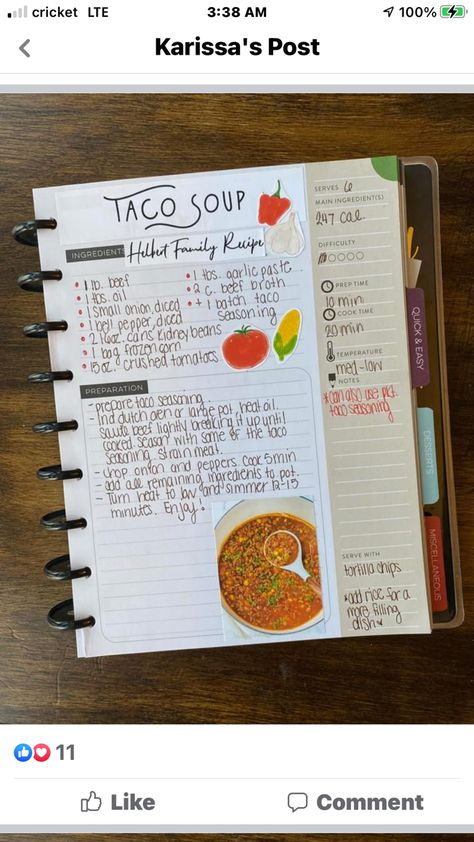 cricket LTE 3:38 AM 100%
Karissa's Post
TACO SOUP
INGREDIENTS Helbert Family Recipe
1 lb. beef
1 tbs. oil
1 small onion, diced
1 bell pepper, diced
2 16oz. cans kidney beans
1 bag frozen corn
15 oz. crushed tomatoes
1 tbs. garlic paste
2 c. beef broth
+ 1 batch taco
seasoning
PREPARATION
- prepare taco seasoning
- In a dutch oven or large pot, heat oil.
sauté beef lightly breaking it up until
cooked. season with some of the taco
seasoning. strain meat.
- chop onion and peppers. cook 5 min
- add all remaining ingredients to pot.
- Turn heat to low and simmer 12-15
minutes. Enjoy!
SERVES 6
MAIN INGREDIENT(S)
247 cal.
DIFFICULTY
PREP TIME
10 min
COOK TIME
20 min
TEMPERATURE
med-low
NOTES
*can also use pkt.
taco seasoning
SERVE WITH
tortilla chips
*add rice for a
more filling
dish*
QUICK & EASY
DESSERTS
MISCELLANEOUS
11
Like Comment